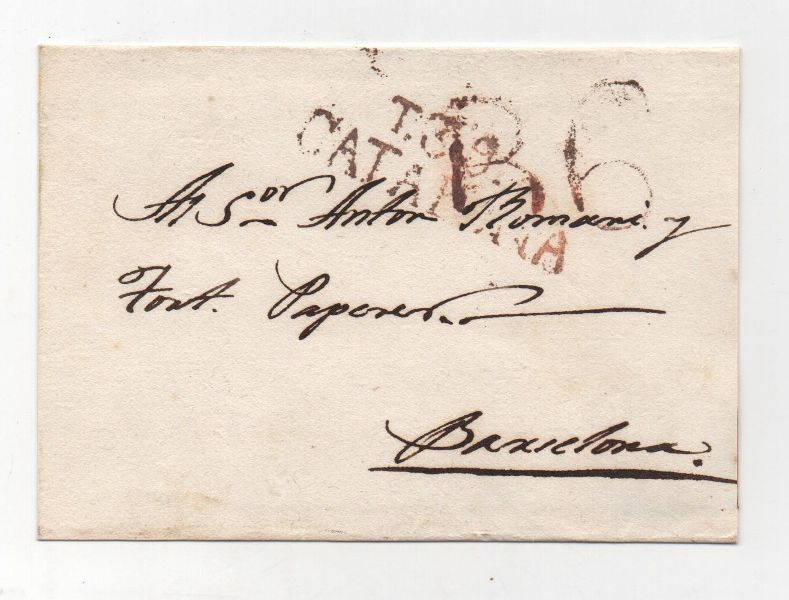 CATALUÑA
Al Sor Anton Romani y
Font. Paperer.
Barcelona.